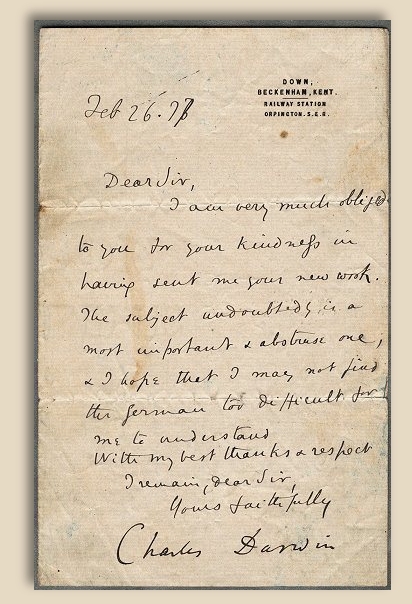 DOWN,
BECKENHAM, KENT.
RAILWAY STATION
ORPINGTON. S.E.R.
Feb 26.
Dear Sir,
I am very much obliged
to you for your kindness in
having sent me your new work.
The subject undoubtedly is a
most important & abstruse one,
& I hope that I may not find
the German too difficult for
me to understand
With my best thanks & respect
I remain, dear Sir,
Yours faithfully
Charles Darwin